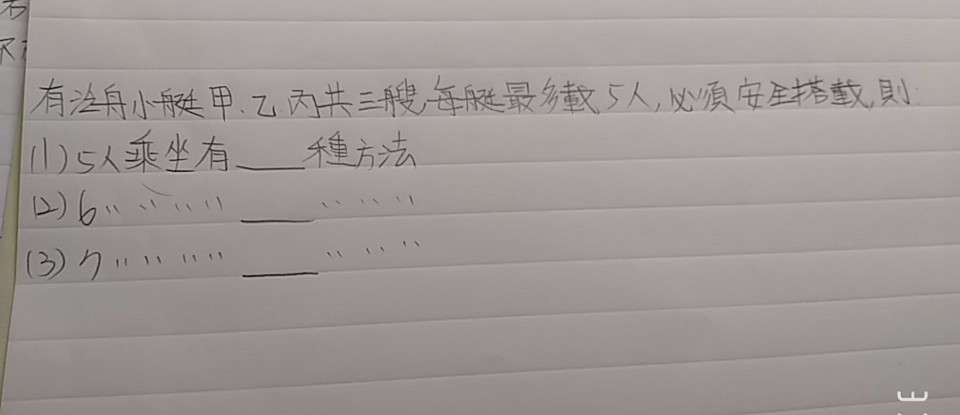 有渡舟小艇甲、乙、丙共三艘,每艇最多載5人,必須安全搭載,則:
(1)5人乘坐有____種方法
(2)6〃〃〃〃____〃〃〃
(3)7〃〃〃〃____〃〃〃